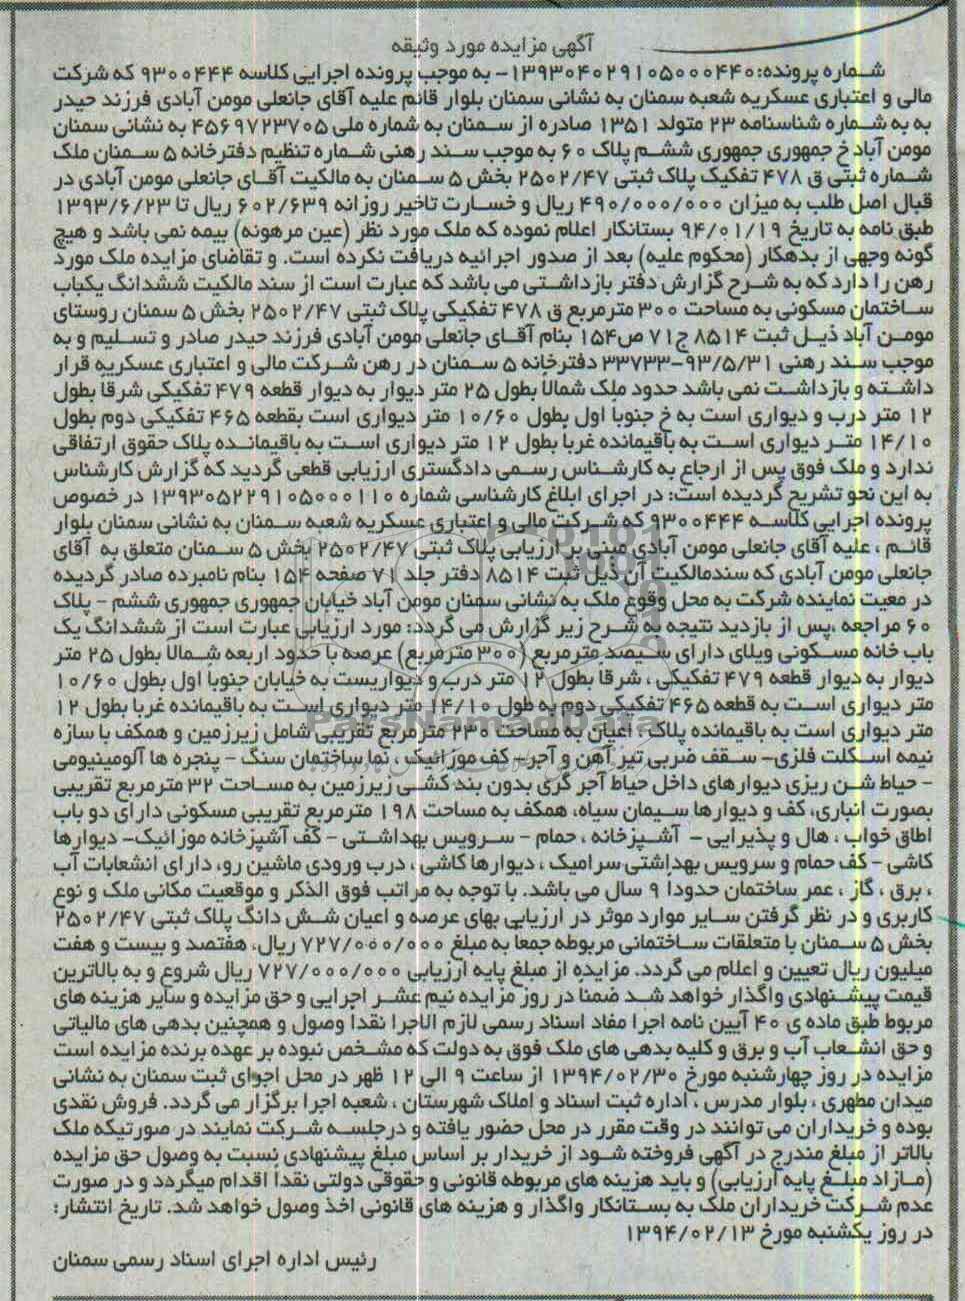 آگهی مزایده مورد وثیقه
شماره پرونده: ۱۳۹۳۰۴۰۲۹۱۰۵۰۰۰۴۴۰- به موجب پرونده اجرایی کلاسه ۹۳۰۰۴۴۴ که شرکت
مالی و اعتباری عسکریه شعبه سمنان به نشانی سمنان بلوار قائم علیه آقای جانعلی مومن آبادی فرزند حیدر
به به شماره شناسنامه ۲۳ متولد ۱۳۵۱ صادره از سمنان به شماره ملی ۴۵۶۹۷۲۳۷۰۵ به نشانی سمنان
مومن آباد خ جمهوری جمهوری ششم پلاک ۶۰ به موجب سند رهنی شماره تنظیم دفترخانه ۵ سمنان ملک
شماره ثبتی ق ۴۷۸ تفکیک پلاک ثبتی ۲۵۰۲/۴۷ بخش ۵ سمنان به مالکیت آقای جانعلی مومن آبادی در
قبال اصل طلب به میزان ۴۹۰/۰۰۰/۰۰۰ ریال و خسارت تاخیر روزانه ۶۰۲/۶۳۹ ریال تا ۱۳۹۳/۶/۲۳
طبق نامه به تاریخ ۹۴/۰۱/۱۹ بستانکار اعلام نموده که ملک مورد نظر (عین مرهونه) بیمه نمی باشد و هیچ
گونه وجهی از بدهکار (محکوم علیه) بعد از صدور اجرائیه دریافت نکرده است. و تقاضای مزایده ملک مورد
رهن را دارد که به شرح گزارش دفتر بازداشتی می باشد که عبارت است از سند مالکیت ششدانگ یکباب
ساختمان مسکونی به مساحت ۳۰۰ مترمربع ق ۴۷۸ تفکیکی پلاک ثبتی ۲۵۰۲/۴۷ بخش ۵ سمنان روستای
مومن آباد ذیل ثبت ۸۵۱۴ ج۷۱ ص۱۵۴ بنام آقای جانعلی مومن آبادی فرزند حیدر صادر و تسلیم و به
موجب سند رهنی ۹۳/۵/۳۱-۳۳۷۳۳ دفترخانه ۵ سمنان در رهن شرکت مالی و اعتباری عسکریه قرار
داشته و بازداشت نمی باشد حدود ملک شمالا بطول ۲۵ متر دیوار به دیوار قطعه ۴۷۹ تفکیکی شرقا بطول
۱۲ متر درب و دیواری است به خ جنوبا اول بطول ۱۰/۶۰ متر دیواری است بقطعه ۴۶۵ تفکیکی دوم بطول
۱۴/۱۰ متر دیواری است به باقیمانده غربا بطول ۱۲ متر دیواری است به باقیمانده پلاک حقوق ارتفاقی
ندارد و ملک فوق پس از ارجاع به کارشناس رسمی دادگستری ارزیابی قطعی گردید که گزارش کارشناس
به این نحو تشریح گردیده است: در اجرای ابلاغ کارشناسی شماره ۱۳۹۳۰۵۲۲۹۱۰۵۰۰۰۱۱۰ در خصوص
پرونده اجرایی کلاسه ۹۳۰۰۴۴۴ که شرکت مالی و اعتباری عسکریه شعبه سمنان به نشانی سمنان بلوار
قائم ، علیه آقای جانعلی مومن آبادی مبنی بر ارزیابی پلاک ثبتی ۲۵۰۲/۴۷ بخش ۵ سمنان متعلق به آقای
جانعلی مومن آبادی که سندمالکیت آن ذیل ثبت ۸۵۱۴ دفتر جلد ۷۱ صفحه ۱۵۴ بنام نامبرده صادر گردیده
در معیت نماینده شرکت به محل وقوع ملک به نشانی سمنان مومن آباد خیابان جمهوری جمهوری ششم - پلاک
۶۰ مراجعه ،پس از بازدید نتیجه به شرح زیر گزارش می گردد: مورد ارزیابی عبارت است از ششدانگ یک
باب خانه مسکونی ویلای دارای سیصد مترمربع (۳۰۰ مترمربع) عرصه با حدود اربعه شمالا بطول ۲۵ متر
دیوار به دیوار قطعه ۴۷۹ تفکیکی ، شرقا بطول ۱۲ متر درب و دیواریست به خیابان جنوبا اول بطول ۱۰/۶۰
متر دیواری است به قطعه ۴۶۵ تفکیکی دوم به طول ۱۴/۱۰ متر دیواری است به باقیمانده غربا بطول ۱۲
متر دیواری است به باقیمانده پلاک ، اعیان به مساحت ۲۳۰ مترمربع تقریبی شامل زیرزمین و همکف با سازه
نیمه اسکلت فلزی- سقف ضربی تیر آهن و آجر- کف موزائیک ، نما ساختمان سنگ - پنجره ها آلومینیومی
- حیاط شن ریزی دیوارهای داخل حیاط آجر گری بدون بند کشی زیرزمین به مساحت ۳۲ مترمربع تقریبی
بصورت انباری، کف و دیوارها سیمان سیاه، همکف به مساحت ۱۹۸ مترمربع تقریبی مسکونی دارای دو باب
اطاق خواب ، هال و پذیرایی - آشپزخانه ، حمام - سرویس بهداشتی - کف آشپزخانه موزائیک- دیوارها
کاشی - کف حمام و سرویس بهداشتی سرامیک ، دیوارها کاشی، درب ورودی ماشین رو، دارای انشعابات آب
، برق ، گاز ، عمر ساختمان حدوداً ۹ سال می باشد. با توجه به مراتب فوق الذکر و موقعیت مکانی ملک و نوع
کاربری و در نظر گرفتن سایر موارد موثر در ارزیابی بهای عرصه و اعیان شش دانگ پلاک ثبتی ۲۵۰۲/۴۷
بخش ۵ سمنان با متعلقات ساختمانی مربوطه جمعا به مبلغ ۷۲۷/۰۰۰/۰۰۰ ریال، هفتصد و بیست و هفت
میلیون ریال تعیین و اعلام می گردد. مزایده از مبلغ پایه ارزیابی ۷۲۷/۰۰۰/۰۰۰ ریال شروع و به بالاترین
قیمت پیشنهادی واگذار خواهد شد ضمنا در روز مزایده نیم عشر اجرایی و حق مزایده و سایر هزینه های
مربوط طبق ماده ی ۴۰ آیین نامه اجرا مفاد اسناد رسمی لازم الاجرا نقدا وصول و همچنین بدهی های مالیاتی
و حق انشعاب آب و برق و کلیه بدهی های ملک فوق به دولت که مشخص نبوده بر عهده برنده مزایده است
مزایده در روز چهارشنبه مورخ ۱۳۹۴/۰۲/۳۰ از ساعت ۹ الی ۱۲ ظهر در محل اجرای ثبت سمنان به نشانی
میدان مطهری ، بلوار مدرس ، اداره ثبت اسناد و املاک شهرستان ، شعبه اجرا برگزار می گردد. فروش نقدی
بوده و خریداران می توانند در وقت مقرر در محل حضور یافته و درجلسه شرکت نمایند در صورتیکه ملک
بالاتر از مبلغ مندرج در آگهی فروخته شود از خریدار بر اساس مبلغ پیشنهادی نسبت به وصول حق مزایده
(مازاد مبلغ پایه ارزیابی) و باید هزینه های مربوطه قانونی و حقوقی دولتی نقداً اقدام میگردد و در صورت
عدم شرکت خریداران ملک به بستانکار واگذار و هزینه های قانونی اخذ وصول خواهد شد. تاریخ انتشار:
در روز یکشنبه مورخ ۱۳۹۴/۰۲/۱۳
رئیس اداره اجرای اسناد رسمی سمنان
ParsNamadData